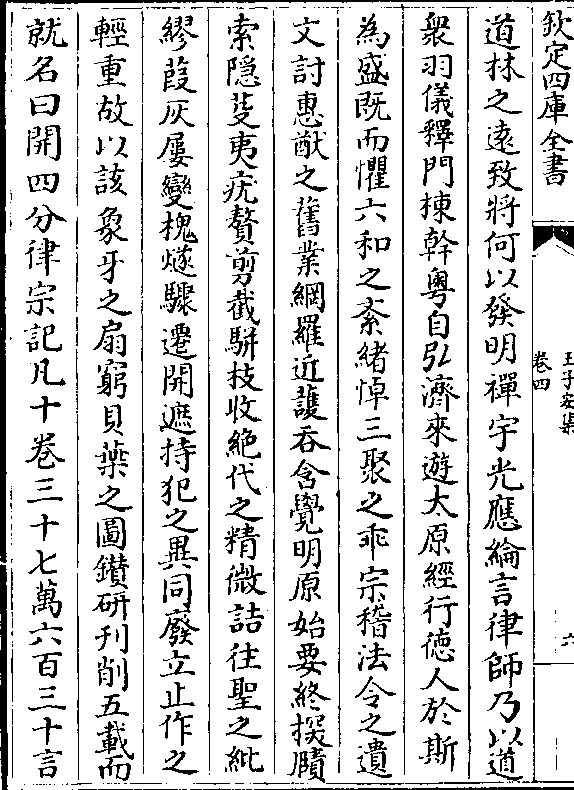 欽定四庫全書
王子安集
卷四
六
道林之遠致將何以發明禪宇光應綸言律師乃以道
衆羽儀釋門棟幹粵自弘濟來遊太原經行徳人於斯
為盛既而懼六和之紊緒悼三聚之乖宗稽法令之遺
文討惠猷之舊業網羅近護吞含覺明原始要終探賾
索隠芟夷疣贅剪截駢技收絶代之精微詰往聖之紕
繆葭灰屢變槐燧驟遷開遮持犯之異同廢立止作之
輕重故以該象牙之扇窮貝葉之圖鑚研刋削五載而
就名曰開四分律宗記凡十巻三十七萬六百三十言